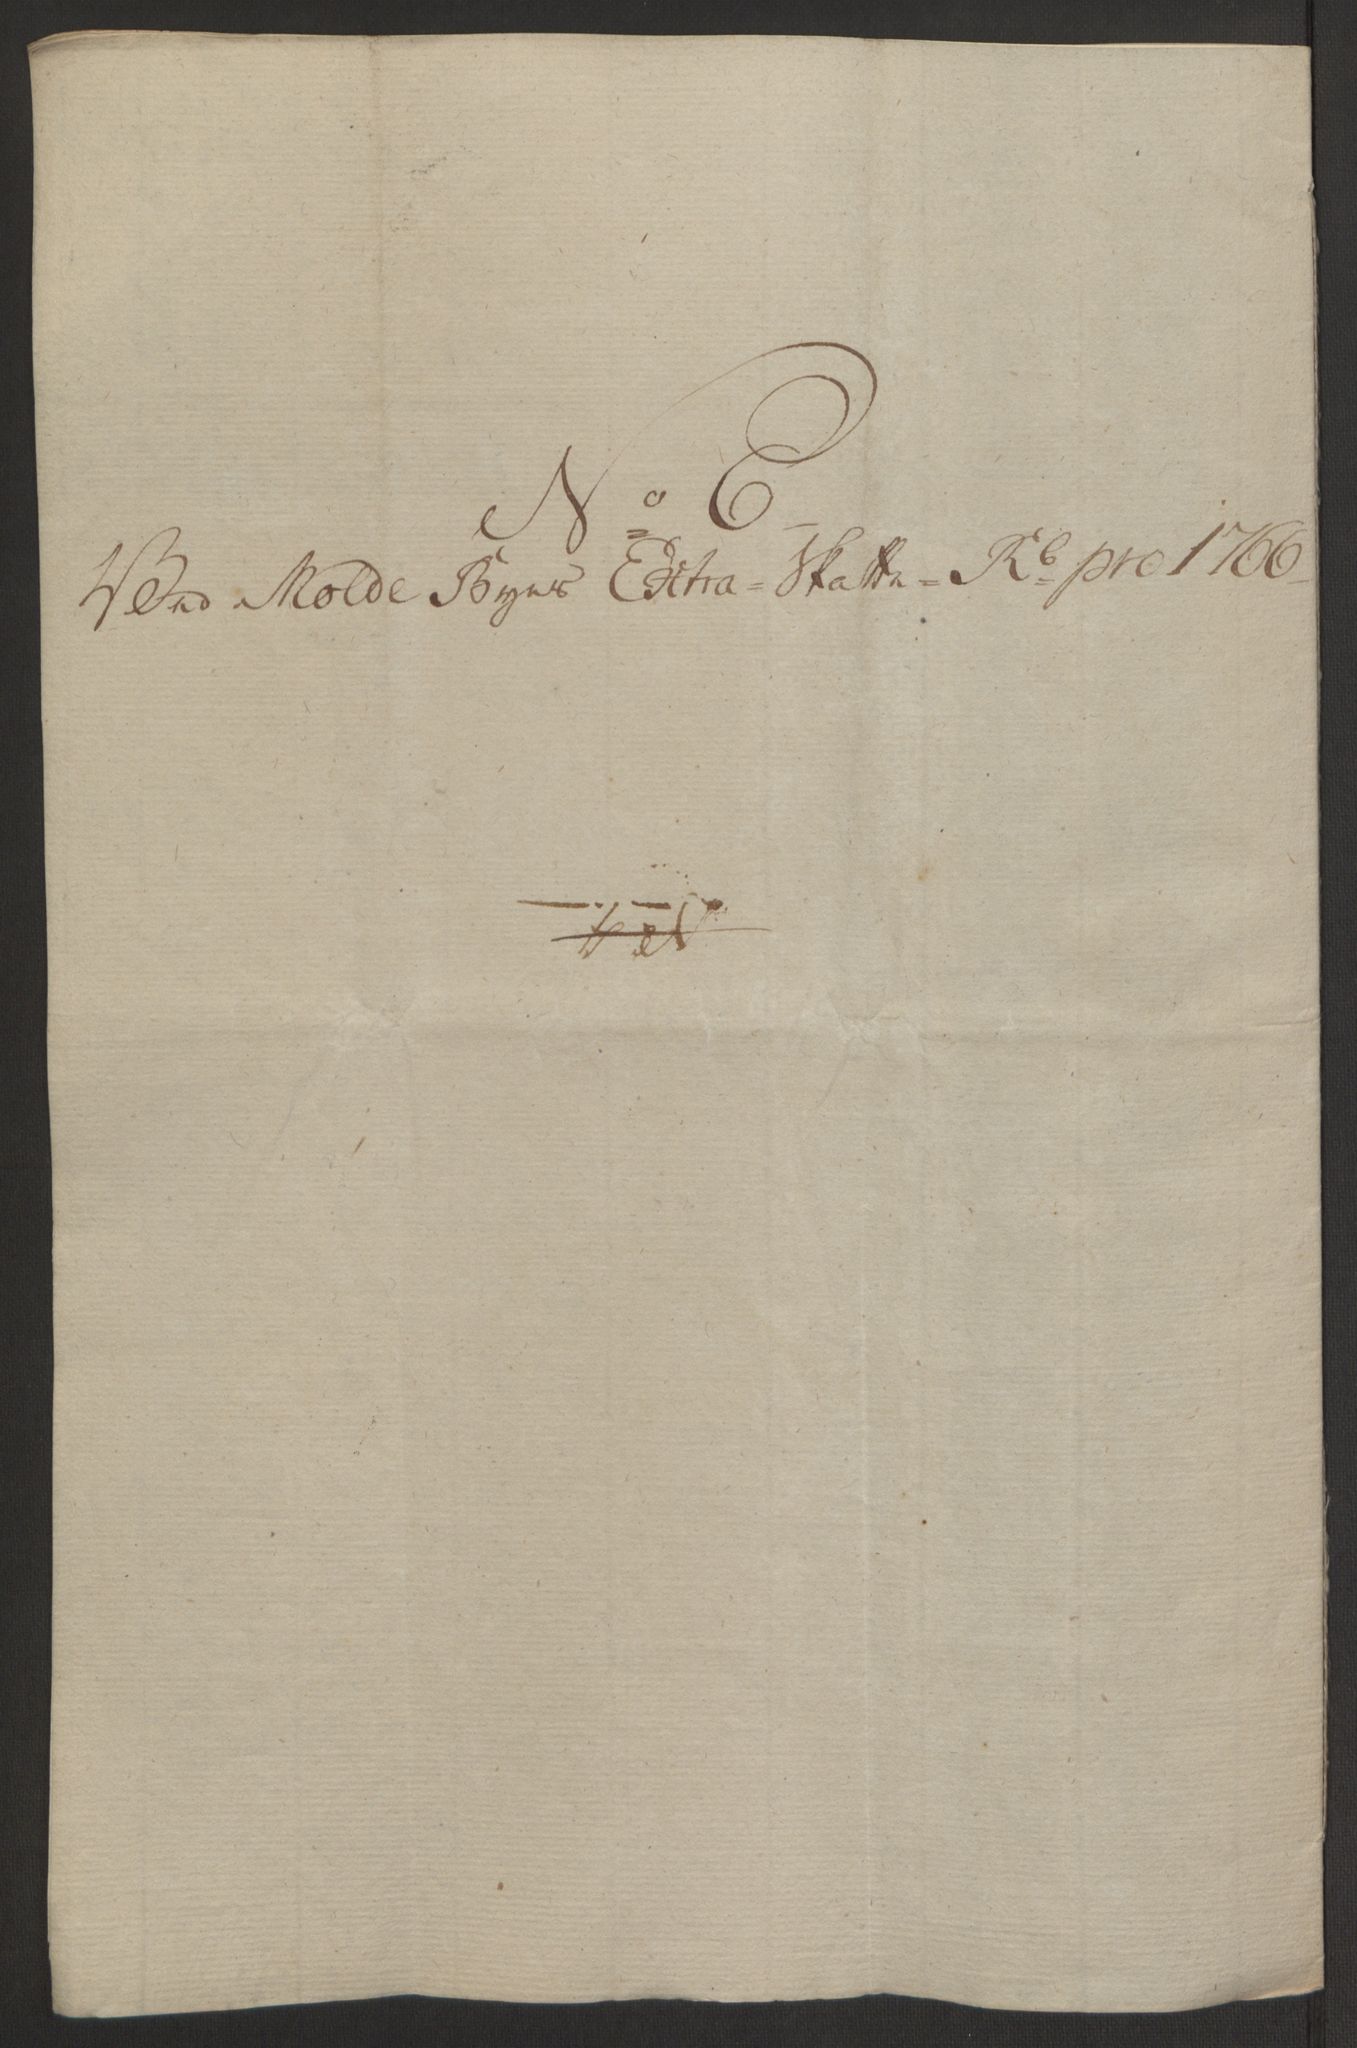 No E
Ved Molde Byes Extra-Skatte-Rb pro 1766